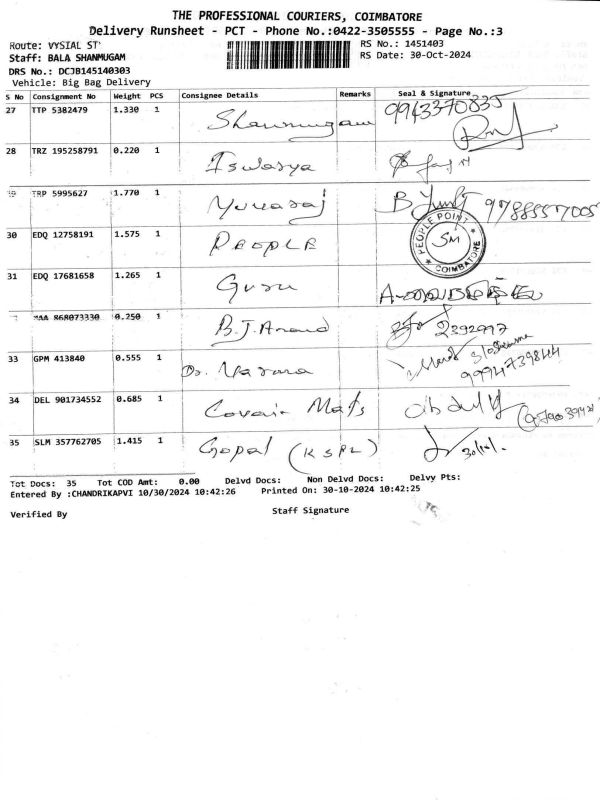 THE PROFESSIONAL COURIERS, COIMBATORE
Delivery Runsheet - PCT - Phone No.:0422-3505555 - Page No.:3
Route: VYSIAL ST
RS No.: 1451403
Staff: BALA SHANMUGAM
RS Date: 30-Oct-2024
DRS No.: DCJB145140303
Vehicle: Big Bag Delivery
S No Consignment No Weight PCS Consignee Details Remarks Seal & Signature
27 TTP 5382479 1.330 1 Shanmugam 9943370835
28 TRZ 195258791 0.220 1 Iswarya
TRP 5995627 1.770 1 Yuvaraj
30 EDQ 12758191 1.575 1 PEOPLE PEOPLE POINT SM COIMBATORE
31 EDQ 17681658 1.265 1 Guru
MAA 868073330 0.250 1 B.J. Anand 2392997
33 GPM 413840 0.555 1 Dr. 9994739844
34 DEL 901734552 0.685 1 Covai Mats abdul
35 SLM 357762705 1.415 1 Gopal (KSPL) 30/10/.
Tot Docs: 35 Tot COD Amt: 0.00 Delvd Docs: Non Delvd Docs: Delvy Pts:
Entered By :CHANDRIKAPVI 10/30/2024 10:42:26 Printed On: 30-10-2024 10:42:25
Verified By Staff Signature